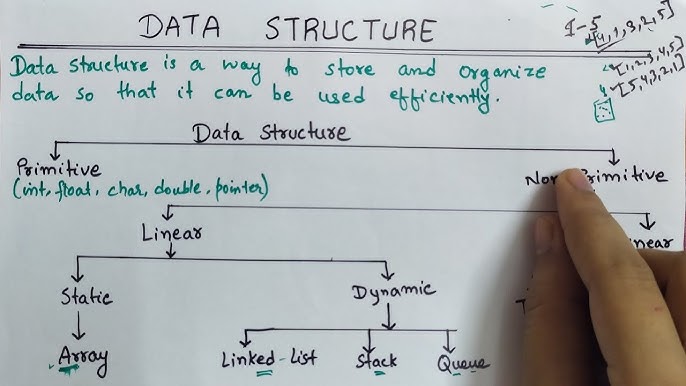 DATA STRUCTURE
1-5
[4,1,3,2,5]
Data structure is a way to store and organize
[1,2,3,4,5]
data so that it can be used efficiently.
[5,4,3,2,1]
Data Structure
Primitive
(int, float, char, double, pointer)
Linear
Static
Dynamic
Array
Linked-List
Stack
Queue